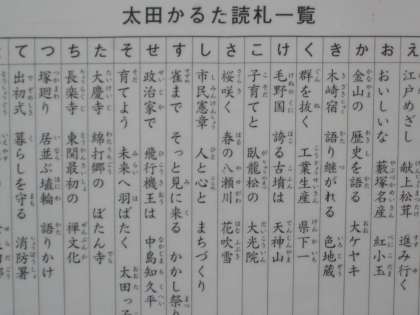 太田かるた読札一覧
え 江戸めざし 献上松茸 進み行く
お おいしいな 藪塚名産 紅小玉
か 金山の 歴史を語る 大ケヤキ
き 木崎宿 語り継がれる 色地蔵
く 群を抜く 工業生産 県下一
け 毛野国 誇る古墳は 天神山
こ 子育てと 臥龍松の 大光院
さ 桜咲く 春の八瀬川 花吹雪
し 市民憲章 人と心と まちづくり
す 雀まで そっと見に来る かかし祭り
せ 政治家で 飛行機王は 中島知久平
そ 育てよう 未来へ羽ばたく 太田っ子
た 大慶寺 綿打郷の ぼたん寺
ち 長楽寺 東関最初の 禅文化
つ 塚廻り 居並ぶ埴輪 語りかけ
て 出初式 暮らしを守る 消防署